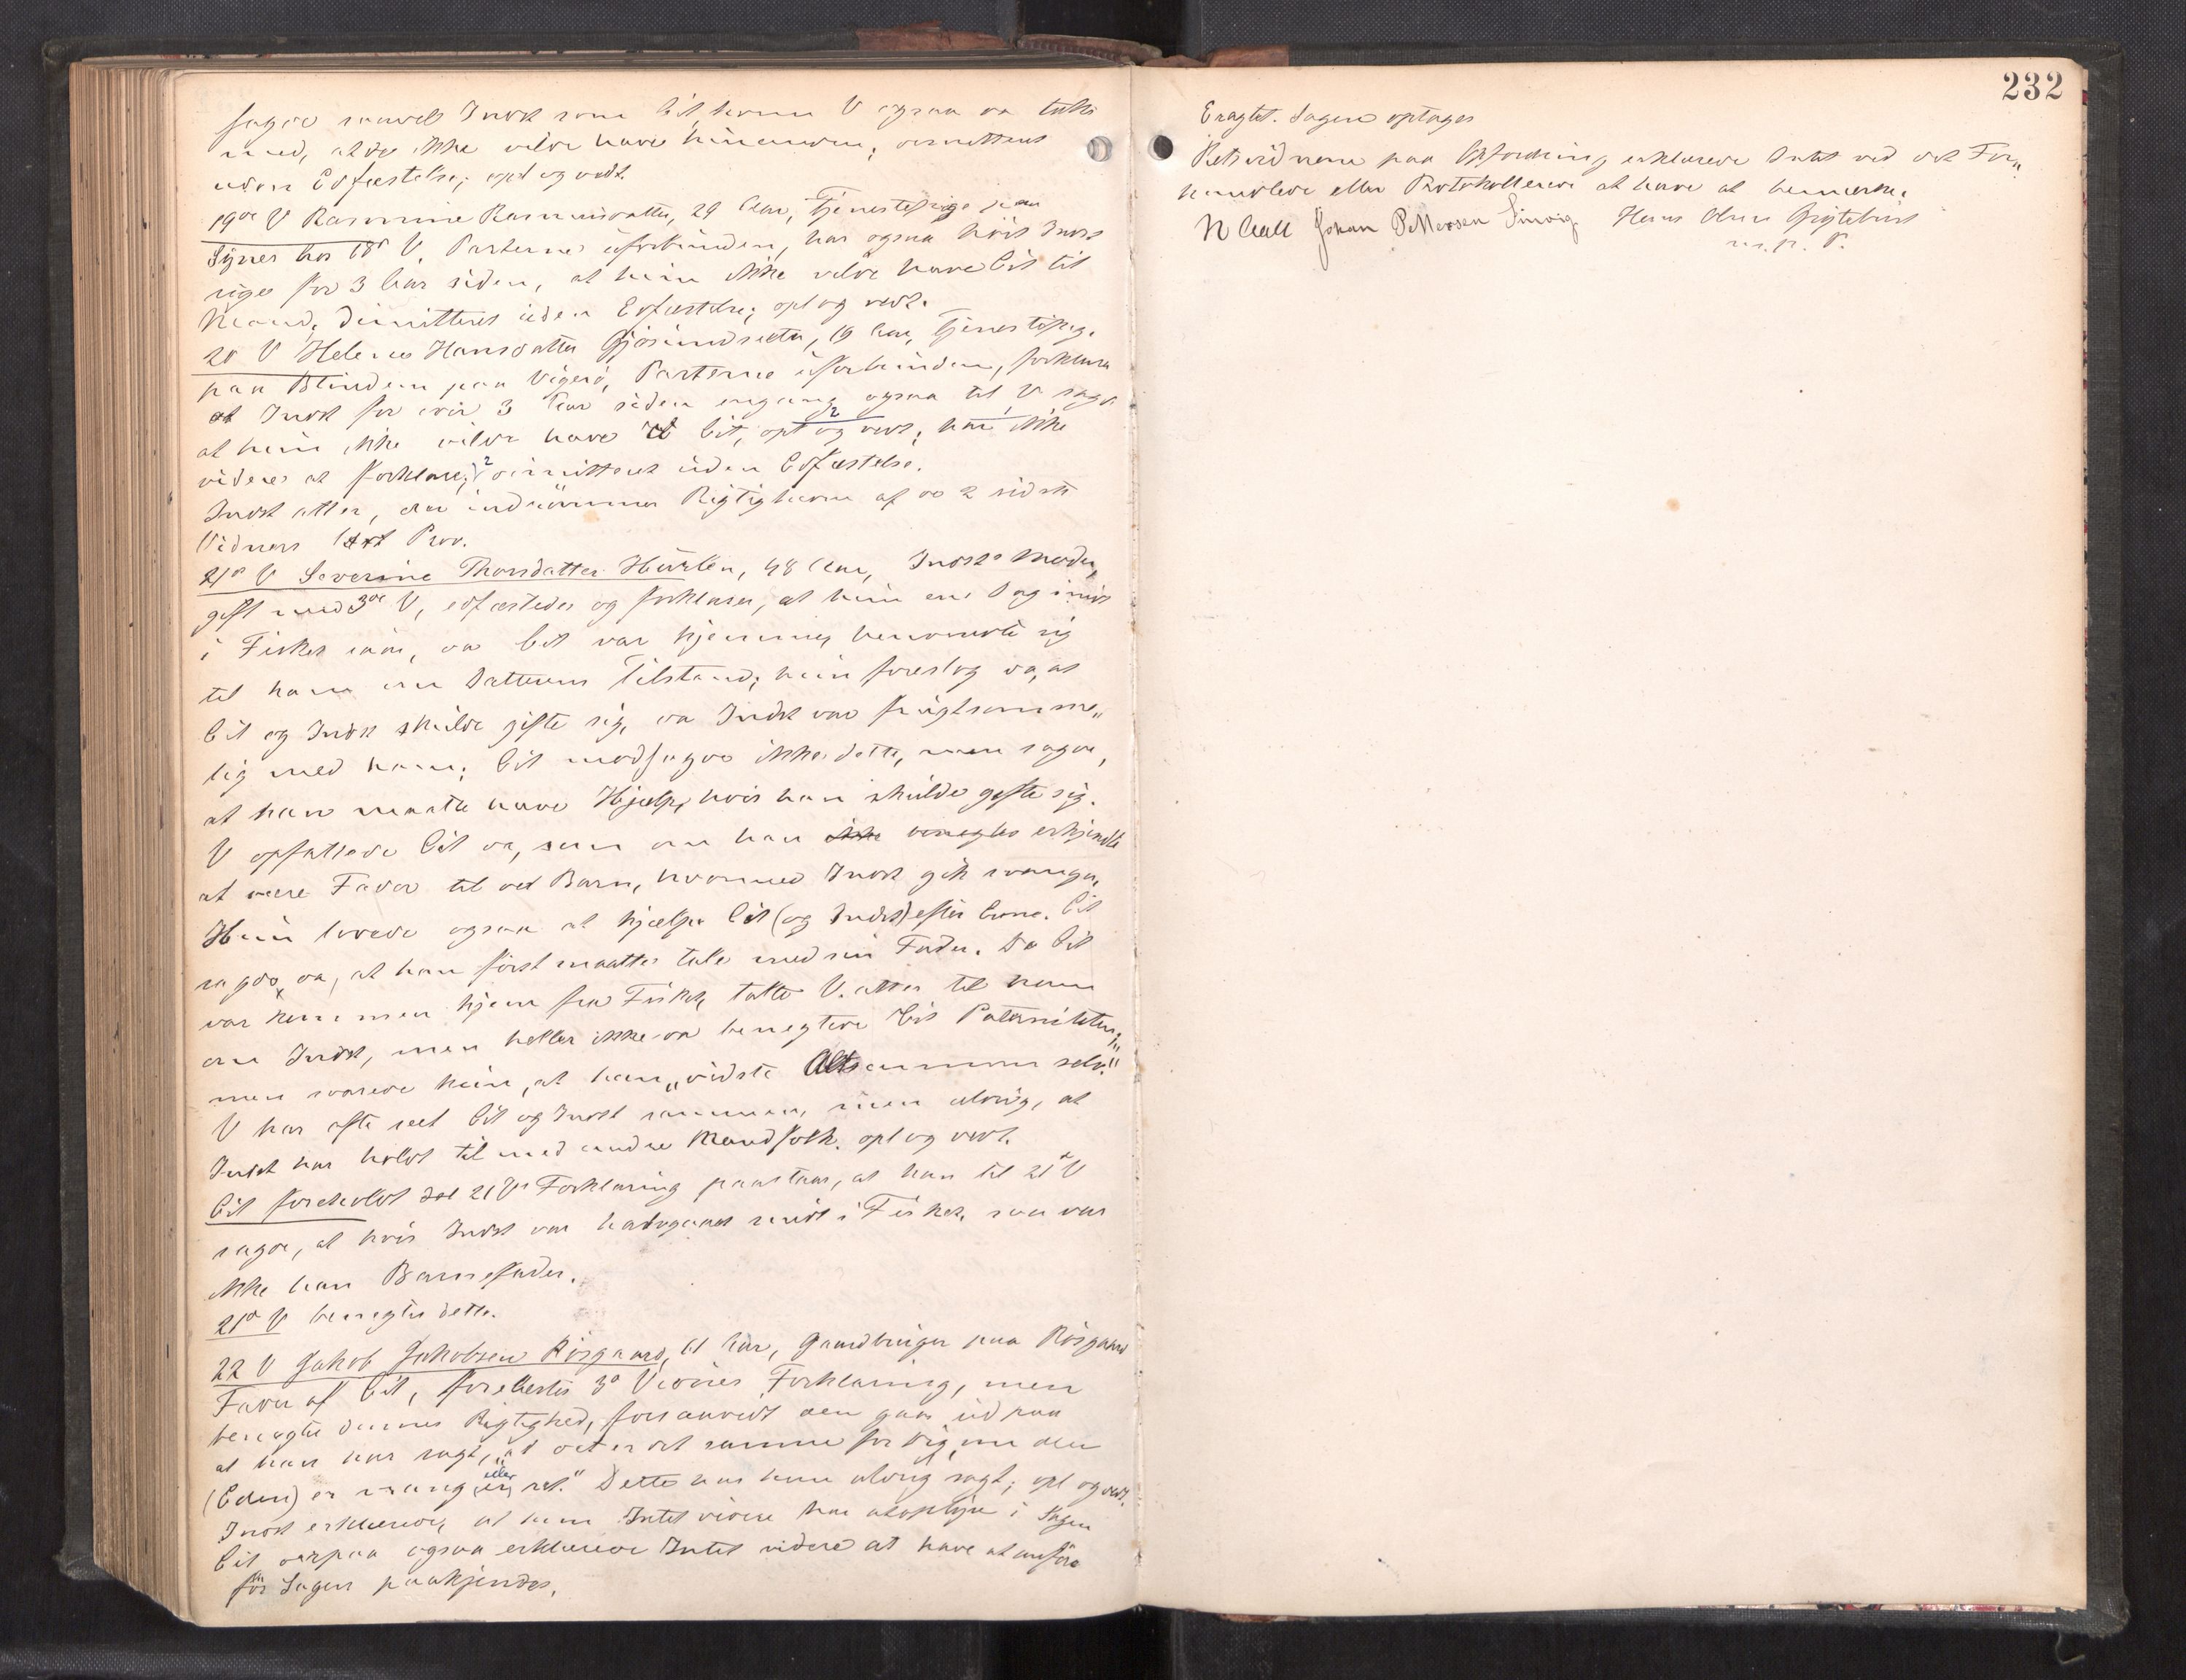 sagde saavel Indst som Cit, hvem V ogsaa da talte
med, at de ikke vilde have hinanden; dimitteret
uden Edfæstelse; opl og vedt.
19de V Rasmine Rasmusdatter, 29 Aar, Tjenestepige paa
Synes hos 18de V, Parterne uforbunden, har ogsaa hört Indst
sige for 3 Aar siden, at hun ikke vilde have Cit til
Mand; dimitteret uden Edfæstelse; opl og vedt.
20 V Helene Hansdatter Gjösundsæter, 19 Aar, Tjenestepige
paa Blindem paa Vigerö, Parterne uforbunden, forklarer
at Indst for over 3 Aar siden engang ogsaa til V sagde
at hun ikke vilde have Cit, opl og vedt; har ikke
videre at forklare; dimitteret uden Edfæstelse.
Indst atter, der indrömmer Rigtigheden af de 2 sidste
Vidners Prov.
21de V Severine Thorsdatter Hurlen, 48 Aar, Indsts Moder,
gift med 3de V, edfæstedes og forklarer, at hun en Dag midt
i Fisket iaar, da Cit var hjemme, henvendte sig
til ham om Datterens Tilstand; hun foreslog da, at
Cit og Indst skulde gifte sig, da Indst var frugtsomme„
lig med ham; Cit modsagde ikke dette, men sagde,
at han maatte have Hjælp, hvis han skulde gifte sig.
V opfattede Cit da, som om han ikke benegtes erkjendte
at være Fader til det Barn, hvormed Indst gik svanger,
Hun lovede ogsaa at hjælpe Cit (og Indst) efter Evne. Cit
sagde da, at han först maatte tale med sin Fader. Da Cit
var kommen hjem fra Fisket, talte V. atter til ham
om Indst, men heller ikke da benegtede Cit Paterniteten,
men svarede hun, at han „vidste Altsammen selv."
V har ofte seet Cit og Indst sammen, men aldrig, at
Indst har holdt til med andre Mandfolk. opl og vedt.
Cit foreholdt det 21 Vs Forklaring paastaar, at han til 21de V
sagde, at hvis Indst var halvgaaet midt i Fisket, saa var
ikke han Barnefader.
21de V benegter dette.
22 V Jakob Jakobsen Rösgaard, 61 Aar, Gaardbruger paa Rösgaard
Fader af Cit, forelæstes 3de Vidnes Forklaring, men
benegter dennes Rigtighed, forsaavidt den gaar ud paa
at han har sagt, „at det er det samme for Dig, om den
(Eden) er vrang eller ret." Dette har han aldrig sagt; opl og vedt.
Indst erklærede, at hun Intet videre har at oplyse i Sagen
Cit derpaa ogsaa erklærede Intet videre at have at anföre
för Sagen paakjendes.
232
Eragtet. Sagen optages
Retsvidnerne paa Opfordring erklærede Intet ved det For„
handlede eller Protokollerede at have at bemærke.
N Aall Johan Pettersen Sinvig Hans Olsen
m. p. P.